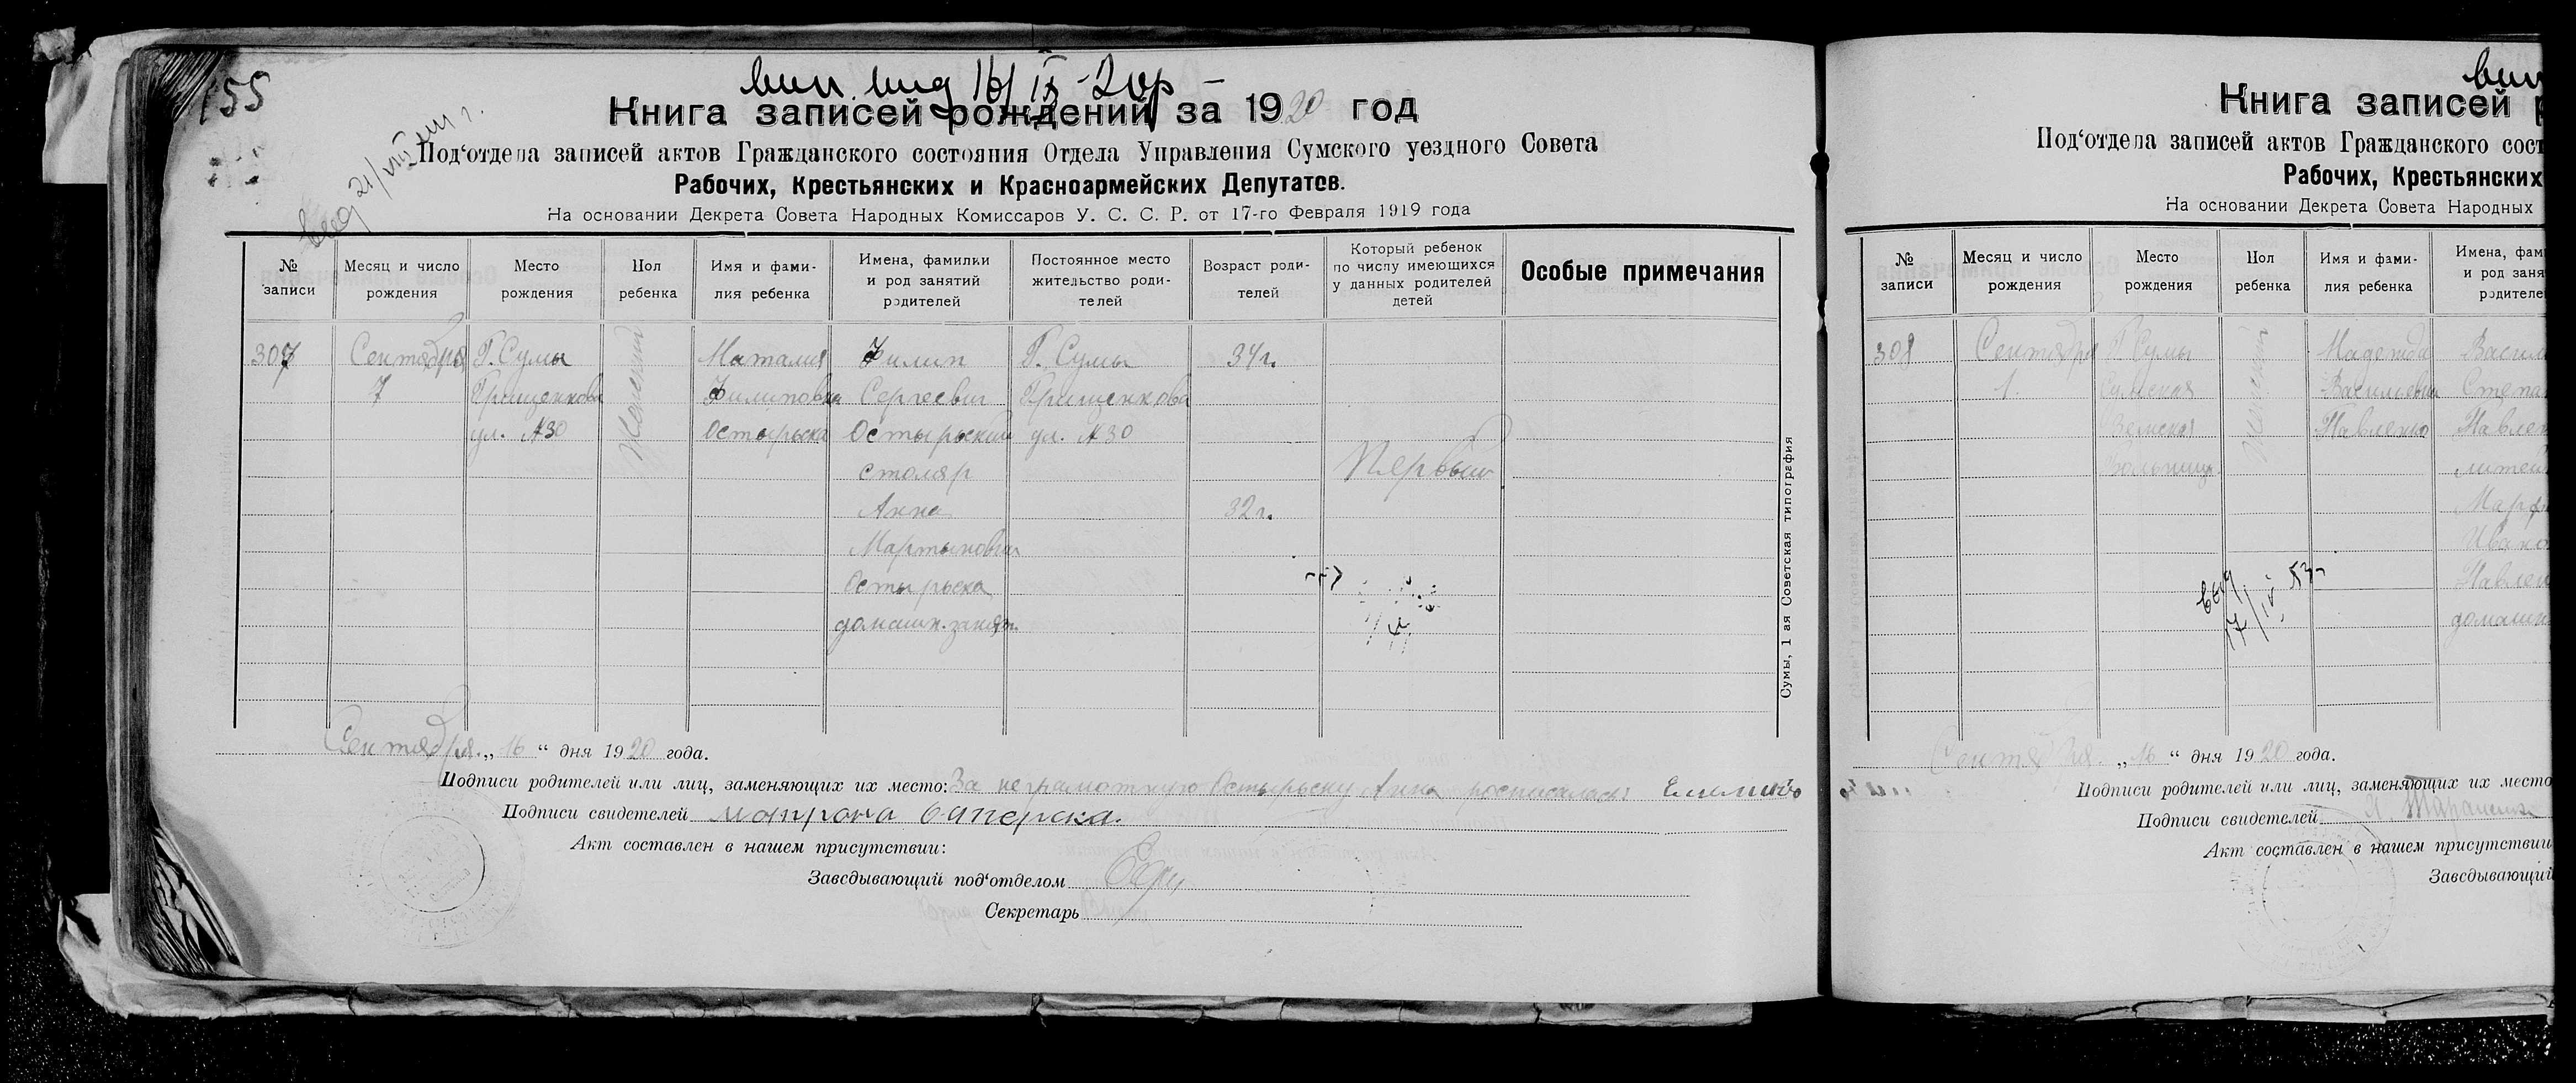 155
вып. выд 16/IX-20р
Книга записей рождений за 1920 год
Под‘отдела записей актов Гражданского состояния Отдела Управления Сумского уездного Совета
Рабочих, Крестьянских и Красноармейских Депутатов.
На основании Декрета Совета Народных Комиссаров У. С. С. Р. от 17-го Февраля 1919 года
№ записи
Месяц и число рождения
Место рождения
Пол ребенка
Имя и фами-
лия ребенка
Имена, фамилии
и род занятий
родителей
Постоянное место
жительство роди-
телей
Возраст роди-
телей
Который ребенок
по числу имеющихся
у данных родителей
детей
Особые примечания
307
Сентября
7
Г. Сумы
Грищенкова
ул. №30
Женский
Наталия
Филиповна
Остырьска
Филип
Сергеевич
Остырьский
столяр
Анна
Мартыновна
Остырьска
домашн. занят.
Г. Сумы
Грищенкова
ул. №30
34г.
32г.
Первый
Сумы, 1 ая Советская типография
Сентября „ 16 “ дня 1920 года.
Подписи родителей или лиц, заменяющих их место: За неграмотную Остырьску Анна росписалась:
Подписи свидетелей
Акт составлен в нашем присутствии:
Заведывающий под‘отделом
Секретарь
Книга записей
Под‘отдела записей актов Гражданского сост
Рабочих, Крестьянских
На основании Декрета Совета Народных
№ записи
Месяц и число
рождения
Место
рождения
Пол
ребенка
Имя и фами-
лия ребенка
Имена, фам
и род заня
родителе
308
Сентября
1.
Г. Сумы
Сумская
Земская
Больница
Женский
Надежда
Васильевна
Павленко
Васил
Степа
Павлен
литей
Марф
Ивано
Павлен
домашн
Сентября. „ 16 “ дня 1920 года.
Подписи родителей или лиц, заменяющих их место
Подписи свидетелей
Акт составлен в нашем присутствии
Заведывающий